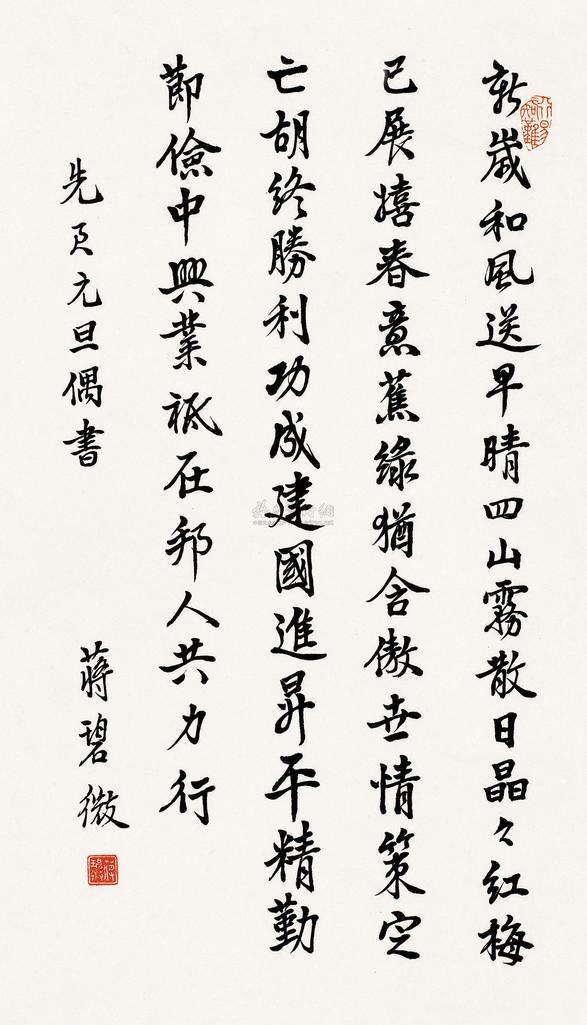 新歲和風送早晴四山霧散日晶々紅梅
已展嬉春意蕉綠猶含傲世情策定
亡胡終勝利功成建國進昇平精勤
節儉中興業祇在邦人共力行
先 元旦偶書
蔣碧微